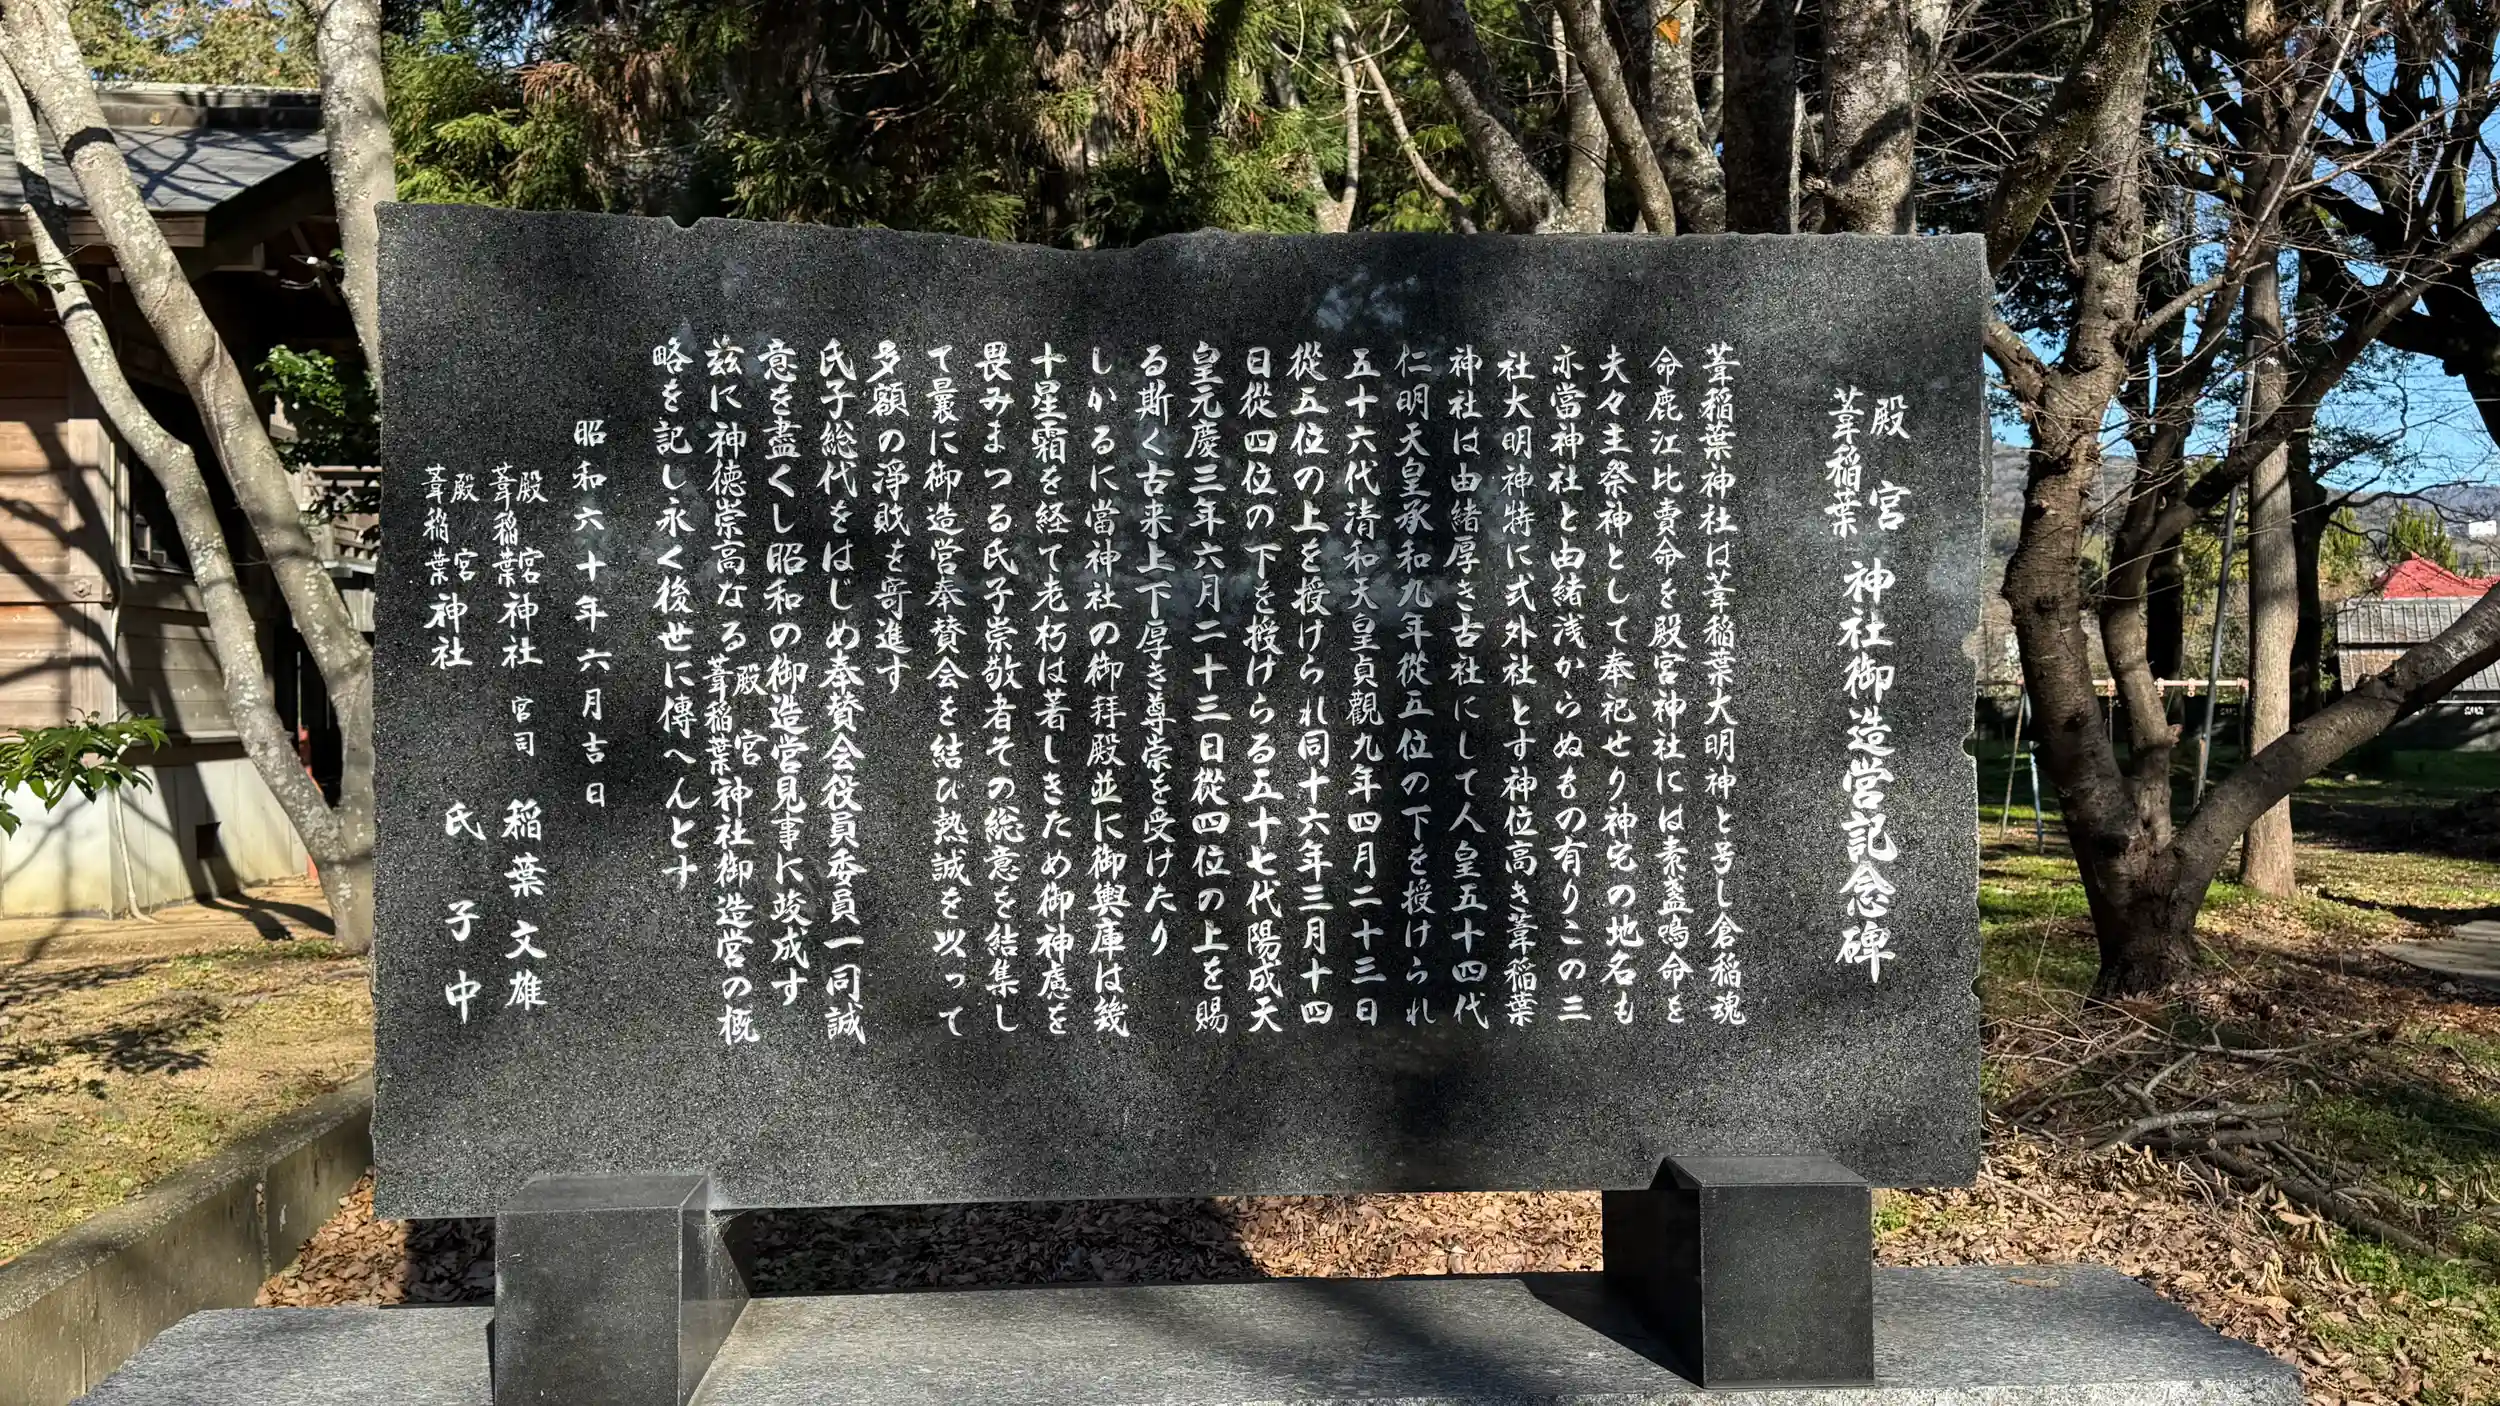 殿宮葦稲葉神社御造営記念碑
葦稲葉神社は葦稲葉大明神と号し倉稲魂
命鹿江比賣命を殿宮神社には素盞嗚命を
夫々主祭神として奉祀せり神宅の地名も
亦當神社と由緒浅からぬもの有りこの三
社大明神特に式外社とす神位高き葦稲葉
神社は由緒厚き古社にして人皇五十四代
仁明天皇承和九年従五位の下を授けられ
五十六代清和天皇貞觀九年四月二十三日
從五位の上を授けられ同十六年三月十四
日從四位の下を授けらる五十七代陽成天
皇元慶三年六月二十三日從四位の上を賜
る斯く古来上下厚き尊崇を受けたり
しかるに當神社の御拜殿並に御輿庫は幾
十星霜を経て老朽は著しきため御神慮を
畏みまつる氏子崇敬者その総意を結集し
て曩に御造営奉賛会を結び熱誠を以って
多額の淨財を寄進す
氏子総代をはじめ奉賛会役員委員一同誠
意を盡くし昭和の御造営見事に竣成す
茲に神徳崇高なる殿宮葦稲葉神社御造営の概
略を記し永く後世に傳へんとす
昭和六十年六月吉日
殿宮葦稲葉神社 宮司 稲葉文雄
殿宮葦稲葉神社 氏子中